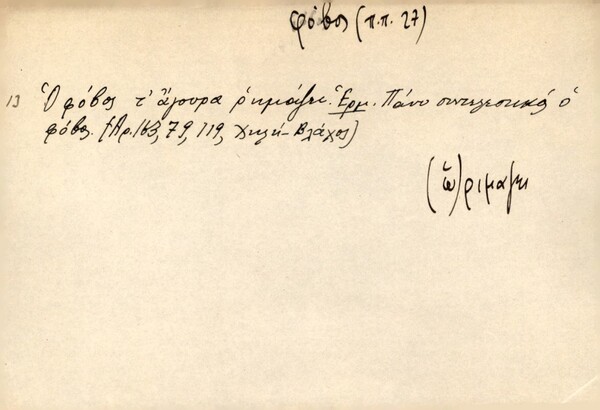 φόβος (π.π. 27)
13 Ὁ φόβος τ' ἄγουρα ῥημάζει. Ἑρμ. Πάνυ συντελεστικός ὁ
φόβος. (Αρ. 163, 79, 119, Χιλή-Βλάχος)
(ὡ)ριμάζει